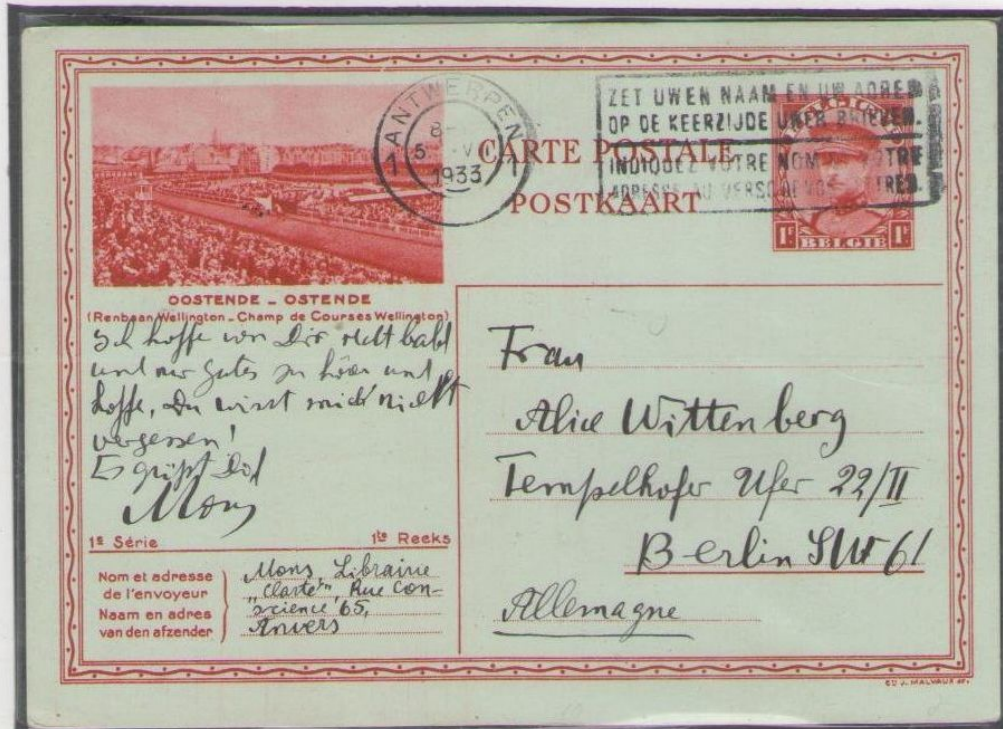 ANTWERPEN
1 1
8-
5 V
1933
ZET UWEN NAAM EN UW ADRES
OP DE KEERZIJDE UWER BRIEVEN.
INDIQUEZ VOTRE NOM VOTRE
ADRESSE AU VERSO
CARTE POSTALE
POSTKAART
BELGIQUE
1F BELGIE 1F
OOSTENDE - OSTENDE
(Renbaan Wellington - Champ de Courses Wellington)
Ich hoffe von Dir recht bald
und nur Gutes zu hören und
hoffe, Du wirst mich nicht
vergessen!
Es grüßt Dich
Mons
1e Série 1ste Reeks
Nom et adresse
de l'envoyeur
Naam en adres
van den afzender
Mons, Librairie
„Clarté", Rue Con-
science 65,
Anvers
Frau
Alice Wittenberg
Tempelhofer Ufer 22/II
Berlin SW 61
Allemagne
ED J. MALVAUX